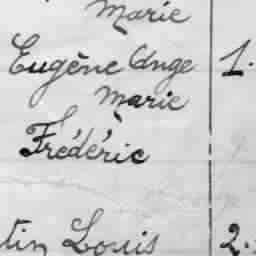 Marie
Eugène Ange 1.
Marie
Frédéric
tin Louis 2.